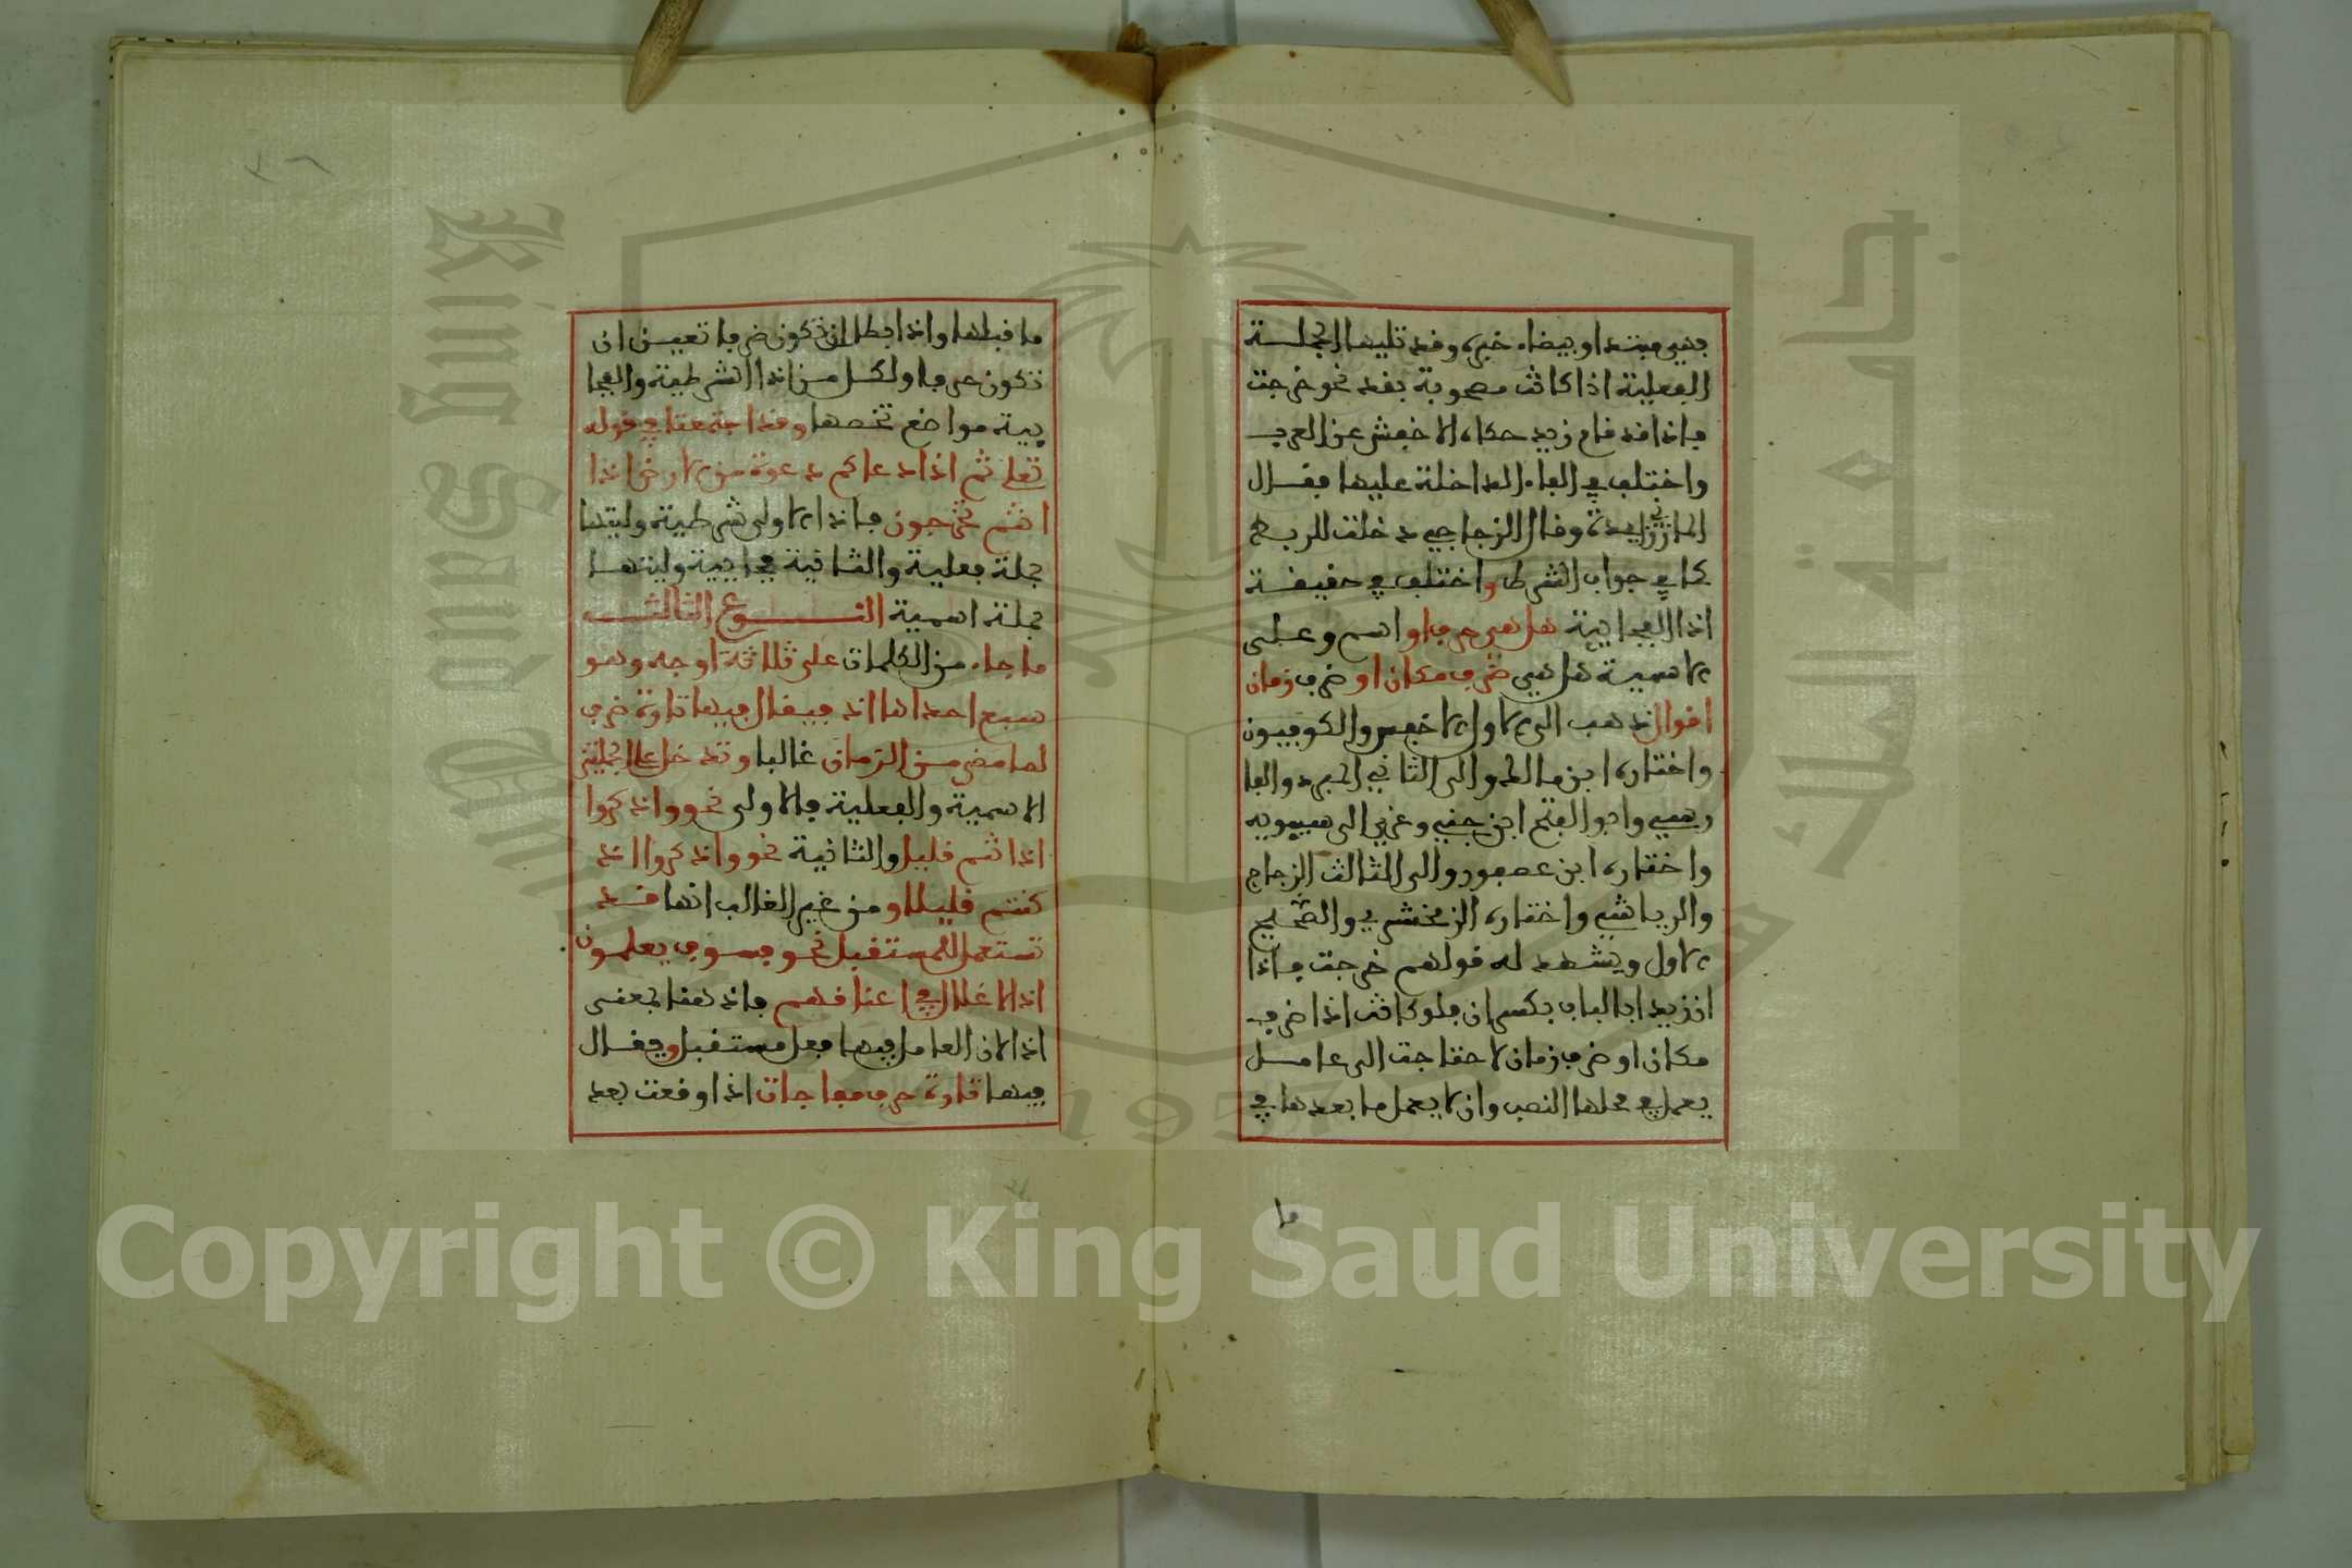 فهي مبتدا وبيضاء خبره وقد تليها الجملة
الفعلية اذا كانت مصحوبة بقد نحو خرجت
فاذا قد قام زيد حكاه الاخفش عن العرب
واختلف في الفاء الداخلة عليها فقال
المازني زايدة وقال الزجاجي دخلت للربط
كما في جواب الشرط واختلف في حقيقة
اذا الفجايية هل هي حرف او اسم وعلى
الاسمية هل هي ظرف مكان او ظرف زمان
اقوال ذهب الى الاول الاخفش والكوفيون
واختاره ابن مالك والى الثاني المبرد والفا
رسي وابو الفتح ابن جني وعزي الى سيبويه
واختاره ابن عصفور والى الثالث الزجاج
والرياشي واختاره الزمخشري والصحيح
الاول ويشهد له قولهم خرجت فاذا
ان زيدا بالباب بكسر ان فلو كانت اذا ظرف
مكان او ظرف زمان لاحتاجت الى عامل
يعمل في محلها النصب وان لا يعمل ما بعدها في
ما
ما قبلها واذا بطل ان تكون ظرفا تعين ان
تكون حرفا ولكل من اذا الشرطية والفجا
يية مواضع تخصها وقد اجتمعتا في قوله
تعلى ثم اذا دعاكم دعوة من الارض اذا
انتم تخرجون فاذا الاولى شرطية وليتها
جملة فعلية والثانية فجايية وليتها
جملة اسمية النوع الثالث
ما جاء من الكلمات على ثلاثة اوجه وهو
سبع احداها اذ فيقال فيها تارة ظرف
لما مضى من الزمان غالبا وتدخل على الجملتين
الاسمية والفعلية فالاولى نحو واذكروا
اذ انتم قليل والثانية نحو واذكروا اذ
كنتم قليلا ومن غير الغالب انها قد
تستعمل للمستقبل نحو فسوف يعلمون
اذ الاغلال في اعناقهم فاذ هنا بمعنى
اذا لان العامل فيها فعل مستقبل ويقال
فيها تارة حرف مفاجات اذا وقعت بعد
Copyright © King Saud University
King Saud University
1957